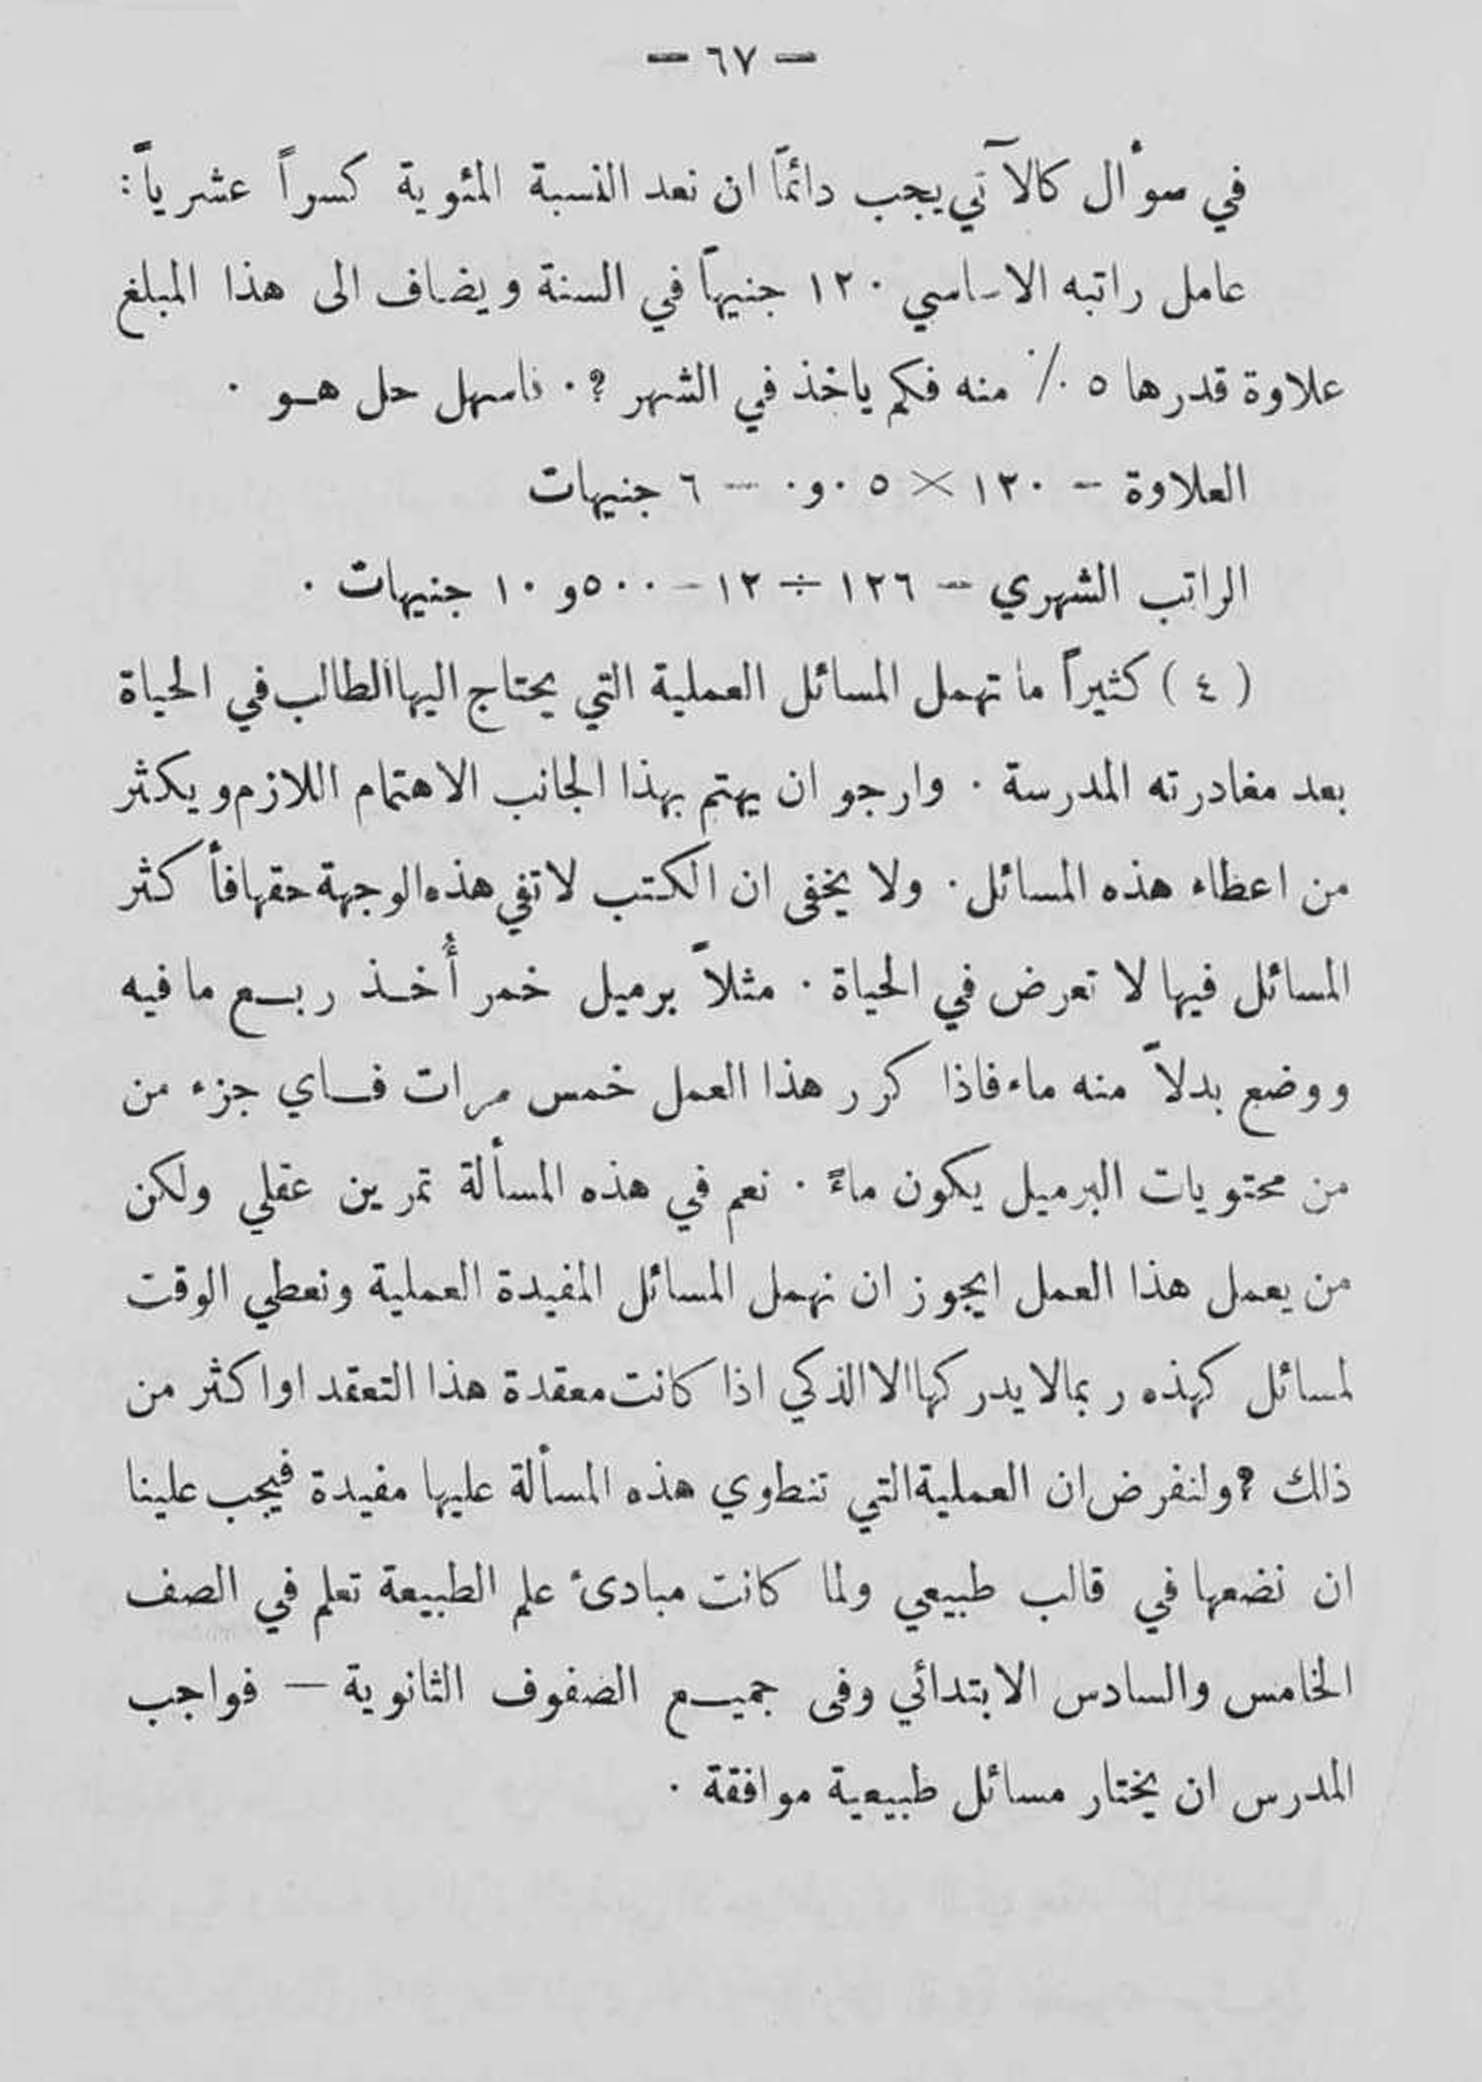 — ٦٧ —
في سوأل كالآتي يجب دائمًا ان نعد النسبة المئوية كسراً عشرياً:
عامل راتبه الاساسي ١٢٠ جنيهًا في السنة ويضاف الى هذا المبلغ
علاوة قدرها ٥ ٠/٠ منه فكم ياخذ في الشهر ؟ ٠ فاسهل حل هـو ٠
العلاوة — ١٢٠ × ٠٥و٠ — ٦ جنيهات
الراتب الشهري — ١٢٦ ÷ ١٢ — ٥٠٠و١٠ جنيهات ٠
( ٤ ) كثيراً ما تهمل المسائل العملية التي يحتاج اليها الطالب في الحياة
بعد مغادرته المدرسة ٠ وارجو ان يهتم بهذا الجانب الاهتمام اللازم ويكثر
من اعطاء هذه المسائل ٠ ولا يخفى ان الكتب لا تفي هذه الوجهة حقها فأكثر
المسائل فيها لا تعرض في الحياة ٠ مثلاً برميل خمر أُخـذ ربـع ما فيه
ووضع بدلاً منه ماء فاذا كرر هذا العمل خمس مرات فـاي جزء من
من محتويات البرميل يكون ماءً ٠ نعم في هذه المسألة تمرين عقلي ولكن
من يعمل هذا العمل ايجوز ان نهمل المسائل المفيدة العملية ونعطي الوقت
لمسائل كهذه ربما لا يدركها الا الذكي اذا كانت معقدة هذا التعقد او اكثر من
ذلك ؟ ولنفرض ان العملية التي تنطوي هذه المسألة عليها مفيدة فيجب علينا
ان نضعها في قالب طبيعي ولما كانت مبادئ علم الطبيعة تعلم في الصف
الخامس والسادس الابتدائي وفى جميـع الصفوف الثانوية — فواجب
المدرس ان يختار مسائل طبيعية موافقة ٠